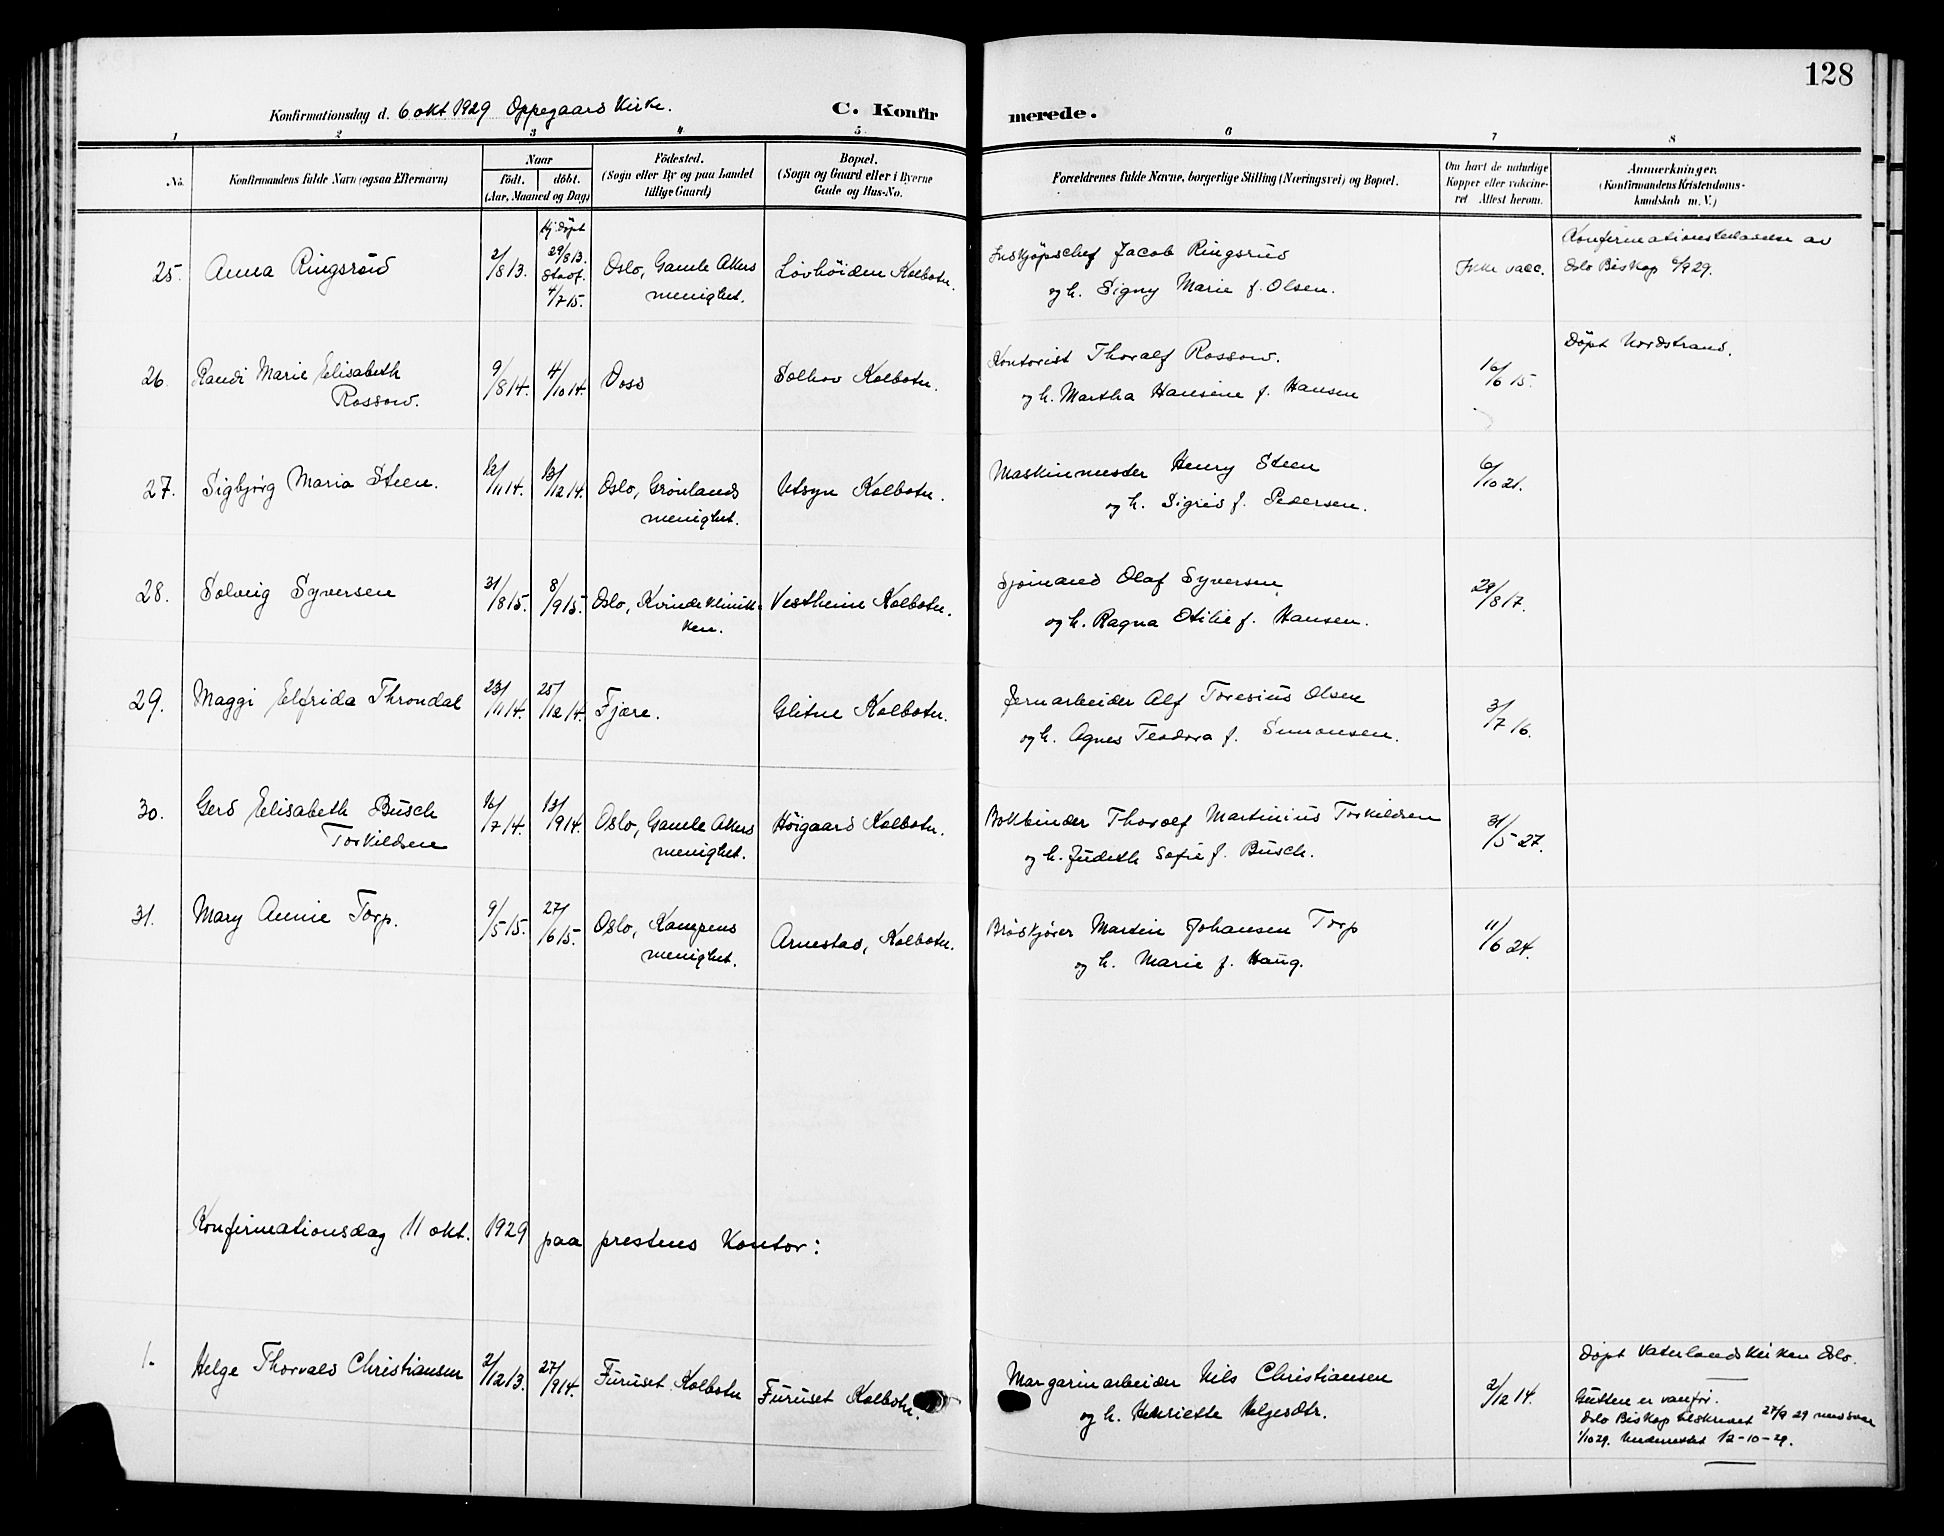 128
Konfirmationsdag d. 6 okt 1929 Oppegaard Kirke.
C. Konfirmerede.
1 2 3 4 5 6 7 8
No.
Konfirmandens fulde Navn (ogsaa Efternavn)
Naar
födt. döbt.
(Aar, Maaned og Dag)
Födested.
(Sogn eller By og paa Landet
tillige Gaard)
Bopæl.
(Sogn og Gaard eller i Byerne
Gade og Hus-No.
Forældrenes fulde Navne, borgerlige Stilling (Næringsvei) og Bopæl.
Om havt de naturlige
Kopper eller vakcine-
ret Attest herom.
Anmerkninger.
(Konfirmandens Kristendoms-
kundskab m. V.)
25. Anna Ringsrud
2/8 13.
Hj. döpt
29/8 13.
Stadf.
4/7 15.
Oslo, Gamle Akers
menighet.
Lövhöiden Kolbotn.
Indkjöpschef Jacob Ringsrud
og h. Signy Marie f. Olsen.
Ikke vacc.
Konfirmationstilladelse av
Oslo Biskop 6/9 29.
26. Randi Marie Elisabeth
Rossow.
9/8 14. 4/10 14.
Voss
Solhov Kolbotn.
Kontorist Thoralf Rossow.
og h. Martha Hansine f. Hansen
16/6 15.
Döpt Nordstrand.
27. Sigbjörg Maria Steen.
12/11 14. 13/12 14.
Oslo, Grönlands
menighet.
Utsyn Kolbotn.
Maskinmester Henry Steen
og h. Sigrid f. Pedersen.
6/10 21.
28. Solveig Syversen
31/8 15. 8/9 15.
Oslo, Kvindeklinik-
ken.
Vestheim Kolbotn.
Sjömand Olaf Syversen
og h. Ragna Otilie f. Hansen.
29/8 17.
29. Maggi Elfrida Throndal
23/11 14. 25/12 14.
Fjære.
Glitne Kolbotn.
Jernarbeider Alf Toresius Olsen
og h. Agnes Teodora f. Simonsen.
3/7 16.
30. Gerd Elisabeth Busch
Torkildsen
16/7 14. 13/9 14.
Oslo, Gamle Akers
menighet.
Höigaard Kolbotn.
Bokbinder Thoralf Martinius Torkildsen
og h. Judith Sofie f. Busch.
31/5 27.
31. Mary Annie Torp.
9/5 15. 27/6 15.
Oslo, Kampens
menighet.
Arnestad, Kolbotn.
Brödkjörer Martin Johansen Torp
og h. Marie f. Haug.
11/6 24.
Konfirmationsdag 11 okt. 1929 paa prestens Kontor:
1. Helge Thorvald Christiansen
2/12 13. 27/9 14.
Furuset Kolbotn
Furuset Kolbotn.
Margarinarbeider Nils Christiansen
og h. Henriette Helgesdtr.
2/12 14.
Döpt Vaterlandskirken Oslo.
Gutten er vanför.
Oslo Biskop tilskrevet 27/9 29 med svar
1/10 29. Underrettet 12-10-29.